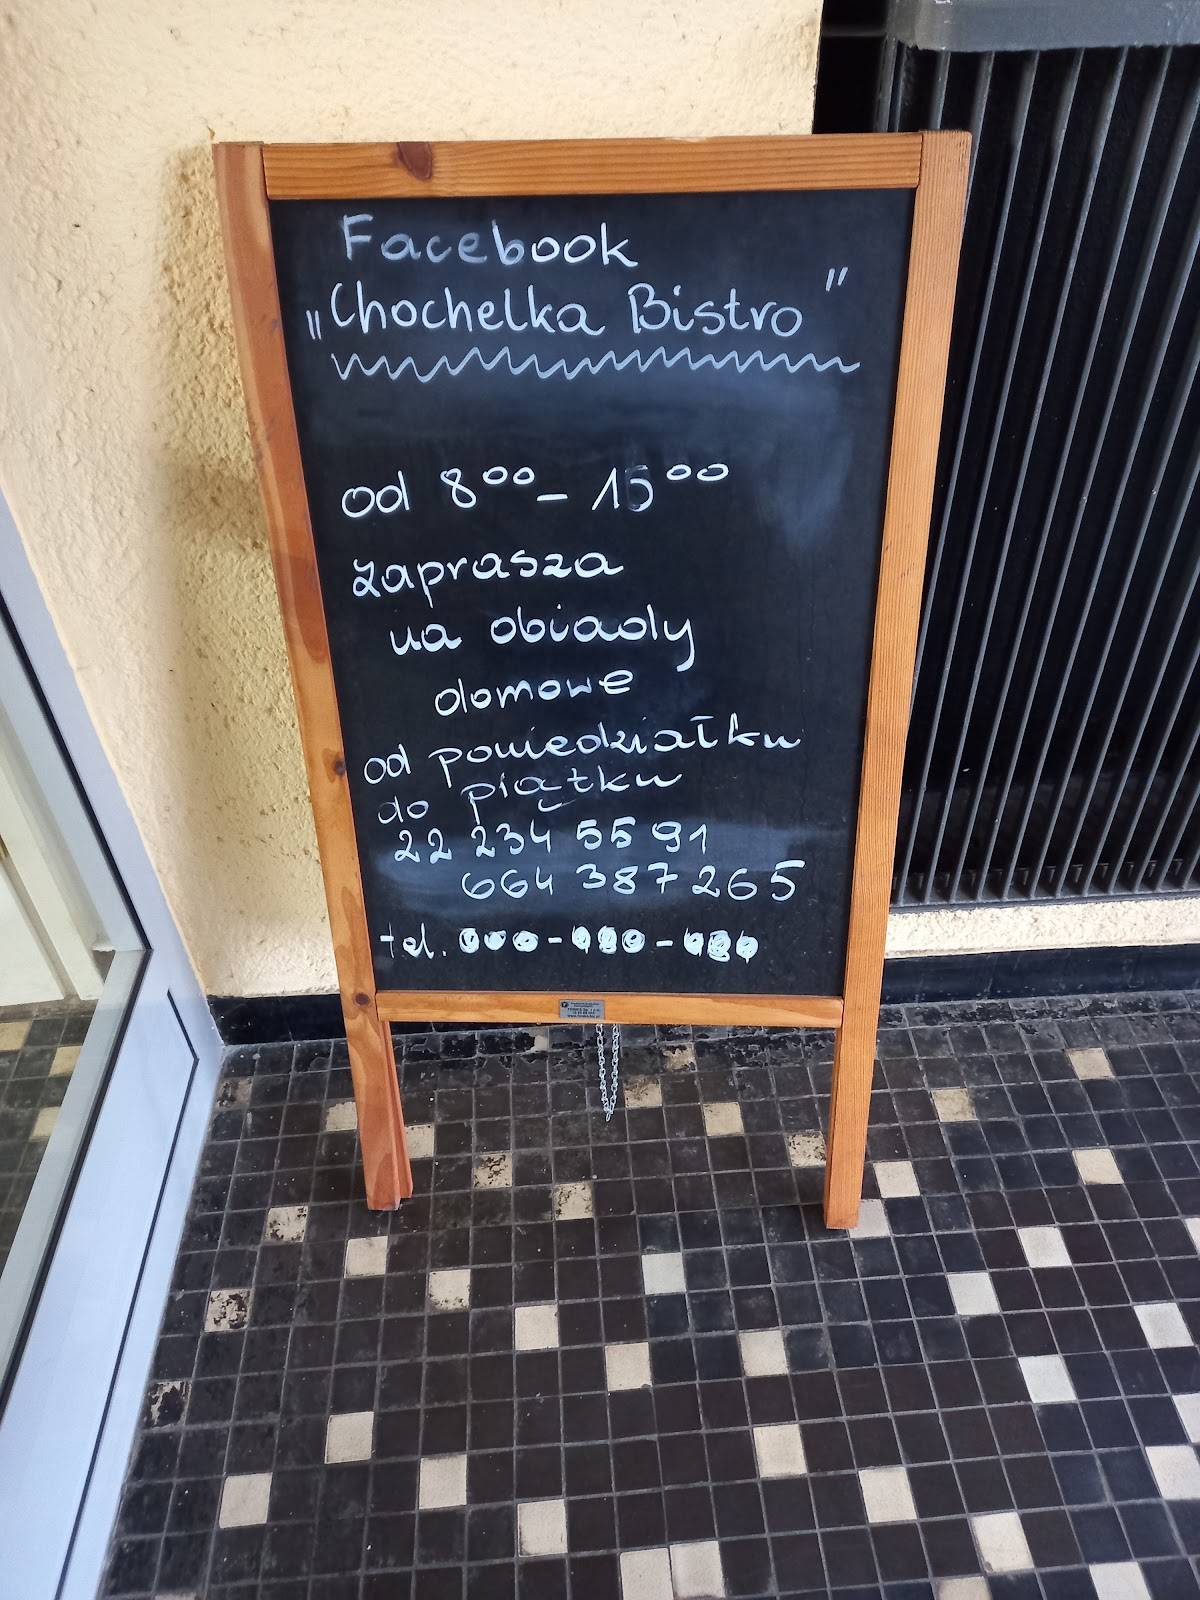 Facebook
„Chochelka Bistro”
od 8⁰⁰ – 15⁰⁰
zaprasza
na obiady
domowe
od poniedziałku
do piątku
22 234 55 91
664 387 265
tel.